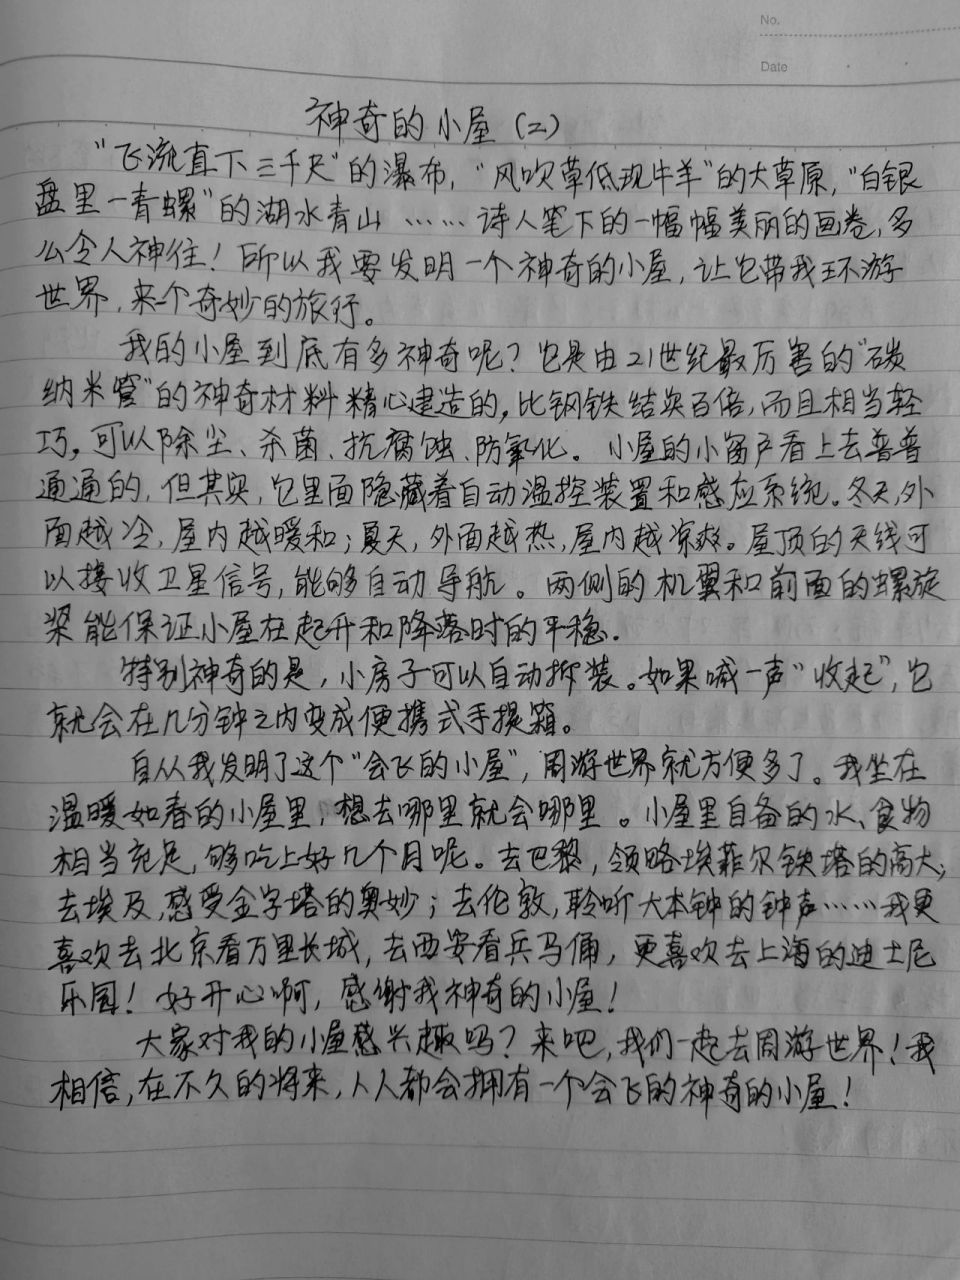 No.
Date
神奇的小屋（二）
“飞流直下三千尺”的瀑布，“风吹草低现牛羊”的大草原，“白银
盘里一青螺”的湖水青山……诗人笔下的一幅幅美丽的画卷，多
么令人神往！所以我要发明一个神奇的小屋，让它带我环游
世界，来个奇妙的旅行。
我的小屋到底有多神奇呢？它是由21世纪最厉害的“碳
纳米管”的神奇材料精心建造的，比钢铁结实百倍，而且相当轻
巧，可以除尘、杀菌、抗腐蚀、防氧化。小屋的小窗户看上去普普
通通的，但其实，它里面隐藏着自动温控装置和感应系统。冬天，外
面越冷，屋内越暖和；夏天，外面越热，屋内越凉爽。屋顶的天线可
以接收卫星信号，能够自动导航。两侧的机翼和前面的螺旋
桨能保证小屋在起升和降落时的平稳.
特别神奇的是，小房子可以自动拆装。如果喊一声“收起”，它
就会在几分钟之内变成便携式手提箱。
自从我发明了这个“会飞的小屋”，周游世界就方便多了。我坐在
温暖如春的小屋里，想去哪里就会哪里。小屋里自备的水、食物
相当充足，够吃上好几个月呢。去巴黎，领略埃菲尔铁塔的高大；
去埃及，感受金字塔的奥妙；去伦敦，聆听大本钟的钟声……我更
喜欢去北京看万里长城，去西安看兵马俑，更喜欢去上海的迪士尼
乐园！好开心啊，感谢我神奇的小屋！
大家对我的小屋感兴趣吗？来吧，我们一起去周游世界！我
相信，在不久的将来，人人都会拥有一个会飞的神奇的小屋！